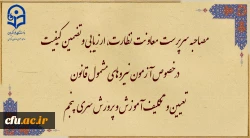 مصاحبه سرپرست معاونت نظارت، ارزیابی و تضمین کیفیت
در خصوص آزمون نیروهای مشمول قانون
تعیین و تکلیف آموزش و پرورش سری پنجم
cfu.ac.ir